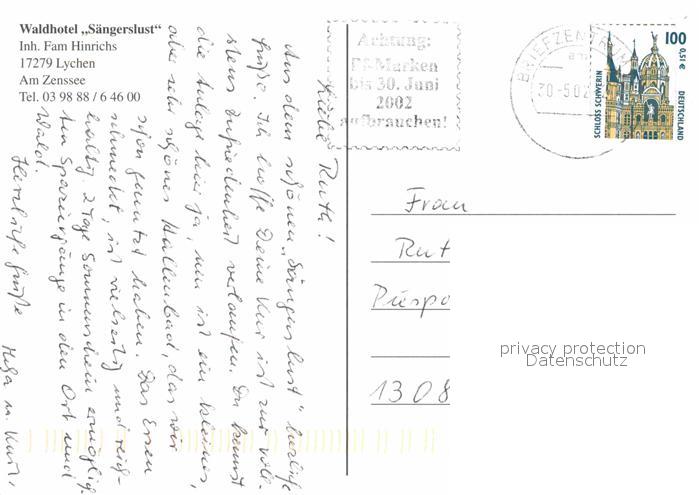 Waldhotel „Sängerslust“
Inh. Fam Hinrichs
17279 Lychen
Am Zenssee
Tel. 03 98 88 / 6 46 00
Liebe Ruth!
Aus dem schönen „Sängerslust“ herzliche
Grüße. Ich hoffe Deine Kur ist zur voll-
stens Zufriedenheit verlaufen. Du kennst
die Anlage hier ja, nun ist ein kleines,
aber sehr schönes Hallenbad, das wir
schon genutzt haben. Das Essen
schmeckt, ist vielseitig und reich-
haltig. 2 Tage Sonnenschein ermöglich-
ten Spaziergänge in den Ort und
Wald.
Herzliche Grüße
u. Kurt
Achtung:
Pf-Marken
bis 30. Juni
2002
aufbrauchen!
BRIEFZENTRUM
30-5.02
100
0,51 €
SCHLOSS SCHWERIN
DEUTSCHLAND
Frau
Rut
Puspo
1308
privacy protection
Datenschutz